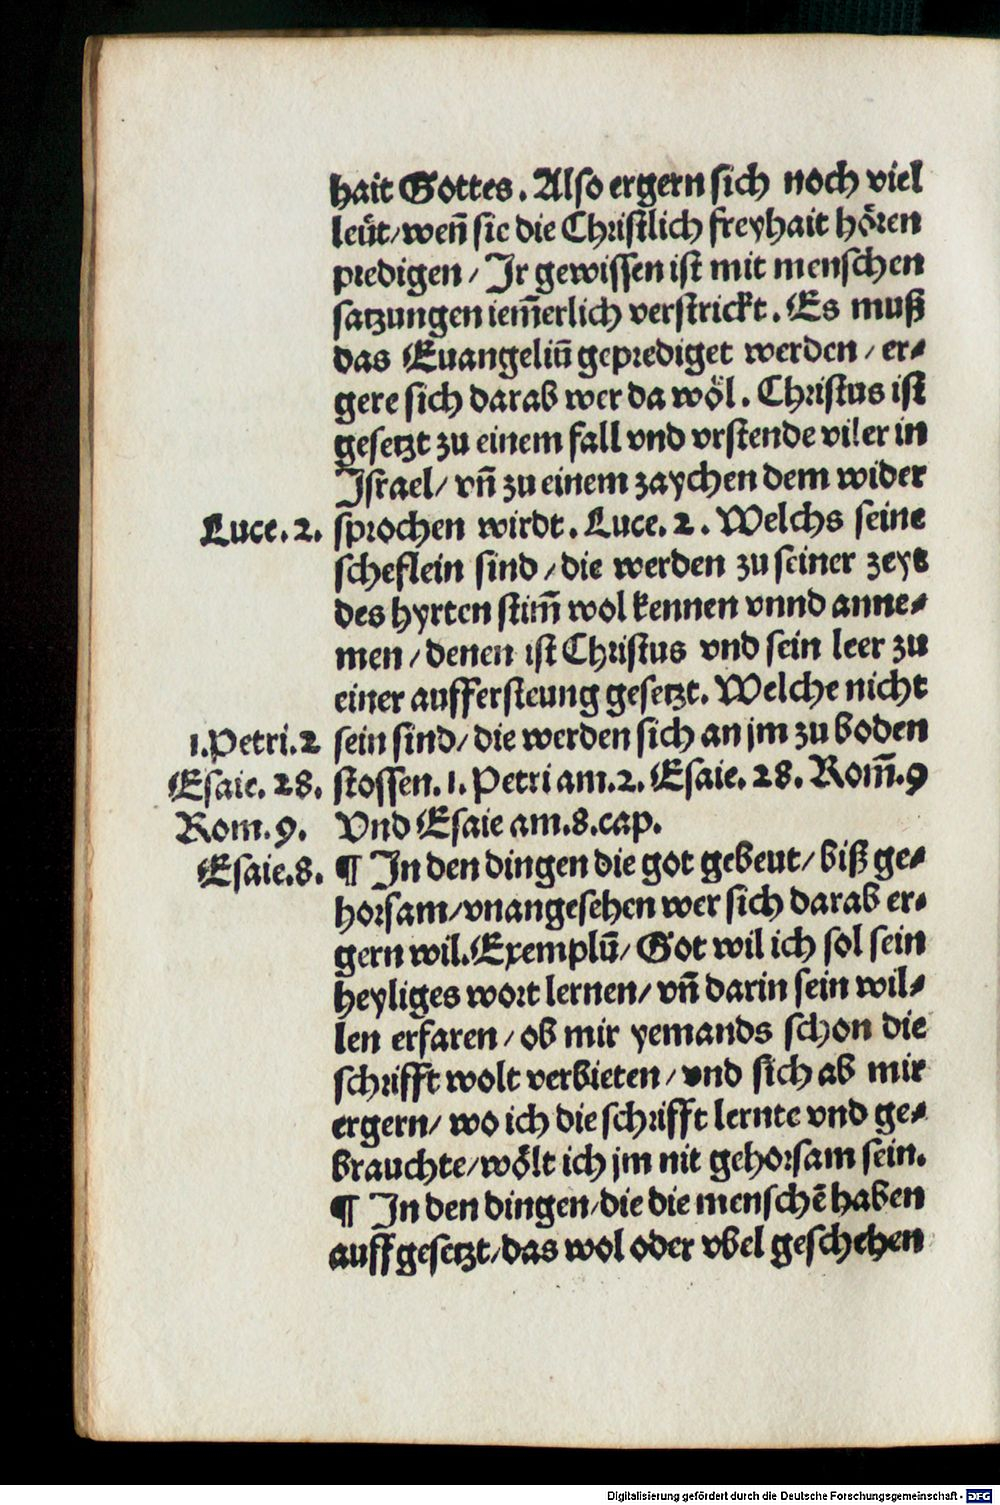 hait Gottes. Also ergern sich noch viel
leüt/weñ sie die Christlich freyhait hören
predigen/ Ir gewissen ist mit menschen
satzungen iem̃erlich verstrickt. Es muß
das Euangeliũ geprediget werden/ er⸗
gere sich darab wer da wöl. Christus ist
gesetzt zu einem fall vnd vrstende viler in
Israel/ vñ zu einem zaychen dem wider
Luce. 2. sprochen wirdt. Luce. 2. Welchs seine
scheflein sind/ die werden zu seiner zeyt
des hyrten stim̃ wol kennen vnnd anne⸗
men/ denen ist Christus vnd sein leer zu
einer auffersteung gesetzt. Welche nicht
1. Petri. 2 sein sind/ die werden sich an jm zu boden
Esaie. 28. stossen. 1. Petri am. 2. Esaie. 28. Rom̃. 9
Rom. 9. Vnd Esaie am. 8. cap.
Esaie. 8. ¶ In den dingen die got gebeut/ biß ge⸗
horsam/vnangesehen wer sich darab er⸗
gern wil. Exemplũ/ Got wil ich sol sein
heyliges wort lernen/ vñ darin sein wil⸗
len erfaren/ ob mir yemands schon die
schrifft wolt verbieten/ vnd sich ab mir
ergern/ wo ich die schrifft lernte vnd ge⸗
brauchte/wölt ich jm nit gehorsam sein.
¶ In den dingen/die die menschẽ haben
auffgesetzt/das wol oder vbel geschehen
Digitalisierung gefördert durch die Deutsche Forschungsgemeinschaft - DFG